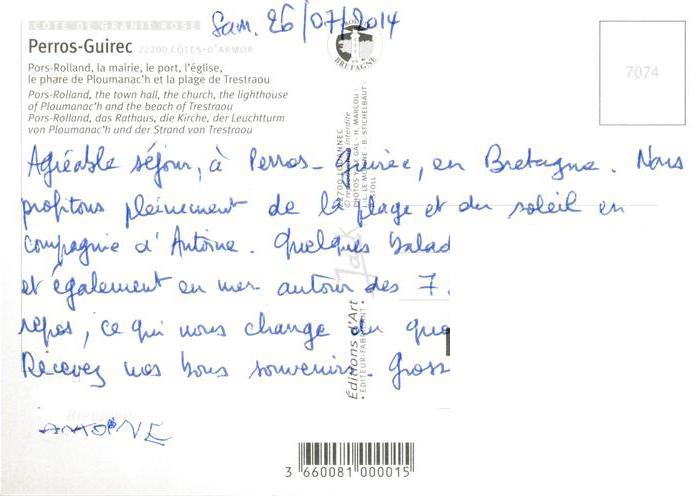 Sam. 26/07/2014
CÔTE DE GRANIT ROSE
Perros-Guirec 22700 CÔTES-D'ARMOR
Pors-Rolland, la mairie, le port, l'église,
le phare de Ploumanac'h et la plage de Trestraou
Pors-Rolland, the town hall, the church, the lighthouse
of Ploumanac'h and the beach of Trestraou
Pors-Rolland, das Rathaus, die Kirche, der Leuchtturm
von Ploumanac'h und der Strand von Trestraou
BRETAGNE
7074
Agréable séjour, à Perros-Guirec, en Bretagne. Nous
profitons pleinement de la plage et du soleil en
compagnie d'Antoine. Quelques balad
et également en mer autour des 7.
repos, ce qui nous change du quo
Recevez nos bons souvenirs. Gross
ANTOINE
Jack
Editions d'Art
• EDITEUR-FABRICANT •
3 660081 000015